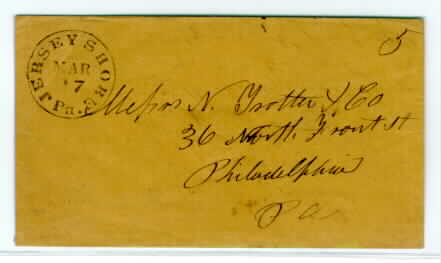 5
JERSEY SHORE
MAR
7
Pa.
Messrs N. Trotter & Co
36 North Front St
Philadelphia
Pa